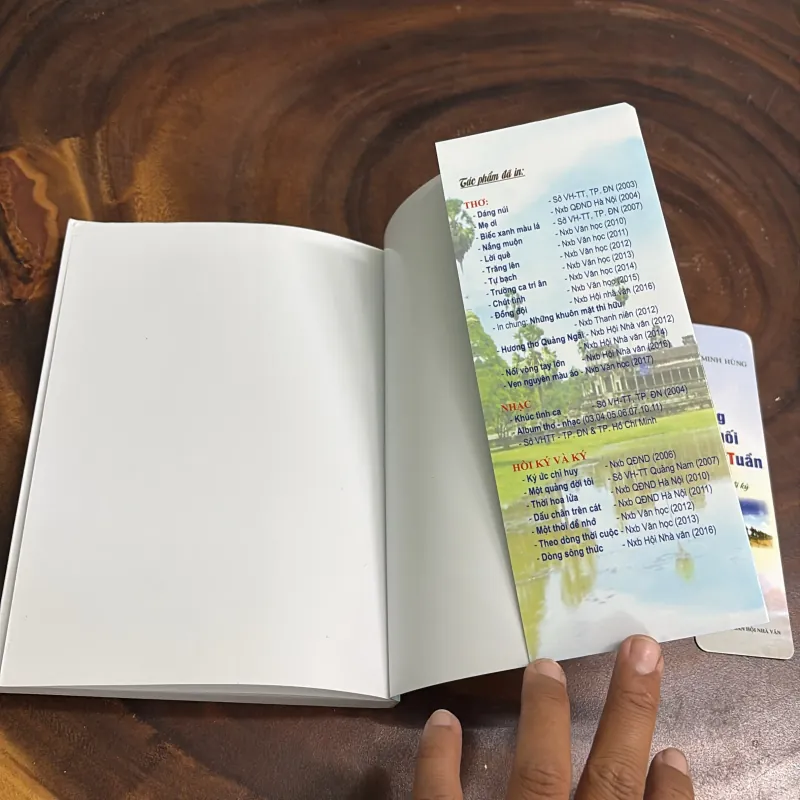 Tác phẩm đã in:
THƠ:
- Dáng núi - Sở VH-TT, TP. ĐN (2003)
- Mẹ ơi - Nxb QĐND Hà Nội (2004)
- Biếc xanh màu lá - Sở VH-TT, TP. ĐN (2007)
- Nắng muộn - Nxb Văn học (2010)
- Lời quê - Nxb Văn học (2011)
- Trăng lên - Nxb Văn học (2012)
- Tự bạch - Nxb Văn học (2013)
- Trường ca tri ân - Nxb Văn học (2014)
- Chút tình - Nxb Văn học (2015)
- Đồng đội - Nxb Hội nhà văn (2016)
- In chung: Những khuôn mặt thi hữu
- Nxb Thanh niên (2012)
- Hương thơ Quảng Ngãi - Nxb Hội Nhà văn (2012)
- Nxb Hội Nhà văn (2014)
- Nối vòng tay lớn - Nxb Hội Nhà văn (2016)
- Vẹn nguyên màu áo - Nxb Văn học (2017)
NHẠC
- Khúc tình ca - Sở VH-TT, TP. ĐN (2004)
- Album thơ - nhạc (03.04.05.06.07.10.11)
- Sở VHTT - TP. ĐN & TP. Hồ Chí Minh
HỒI KÝ VÀ KÝ
- Ký ức chỉ huy - Nxb QĐND (2006)
- Một quãng đời tôi - Sở VH-TT Quảng Nam (2007)
- Thời hoa lửa - Nxb QĐND Hà Nội (2010)
- Dấu chân trên cát - Nxb QĐND Hà Nội (2011)
- Một thời để nhớ - Nxb Văn học (2012)
- Theo dòng thời cuộc - Nxb Văn học (2013)
- Dòng sông thức - Nxb Hội Nhà văn (2016)
MINH HÙNG
Tuần
HỘI NHÀ VĂN